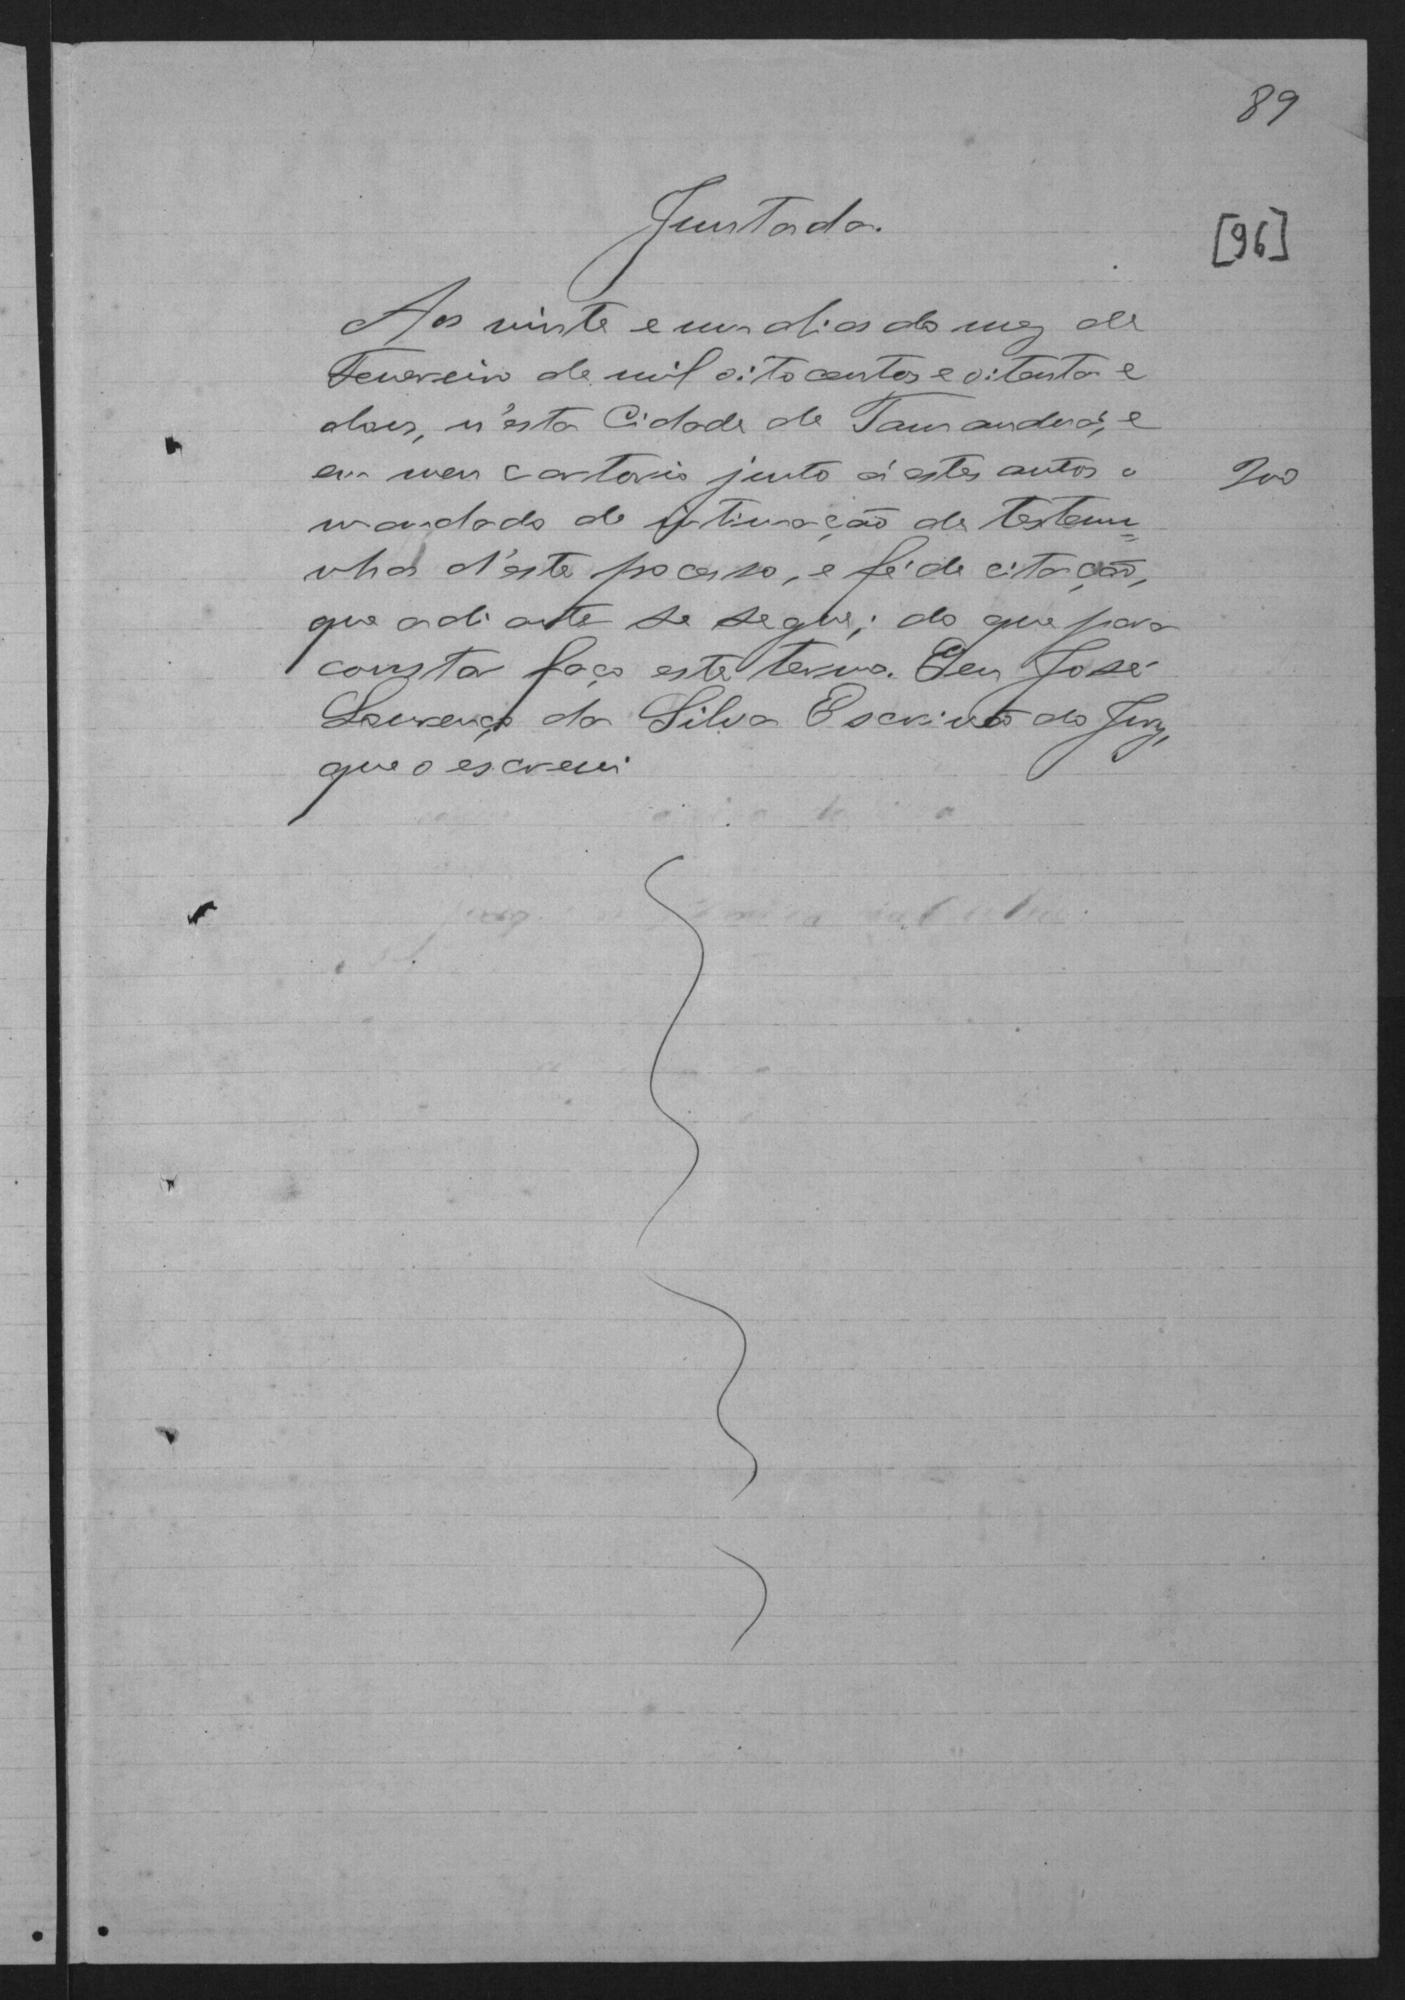 89
Juntada.
[96]
Aos vinte e um dias do mez de
Fevereiro de mil oito centos e oitenta e
dous, n'esta Cidade de Tamanduá, e
em meu cartorio junto á estes autos o
200
mandado de intimação de testemu=
nhas d'este pocesso, e fé de citação,
que adiante se segue; do que para
constar faço este termo. Eeu José
Lourenço da Silva Escrivão do Jury,
que o escrevi